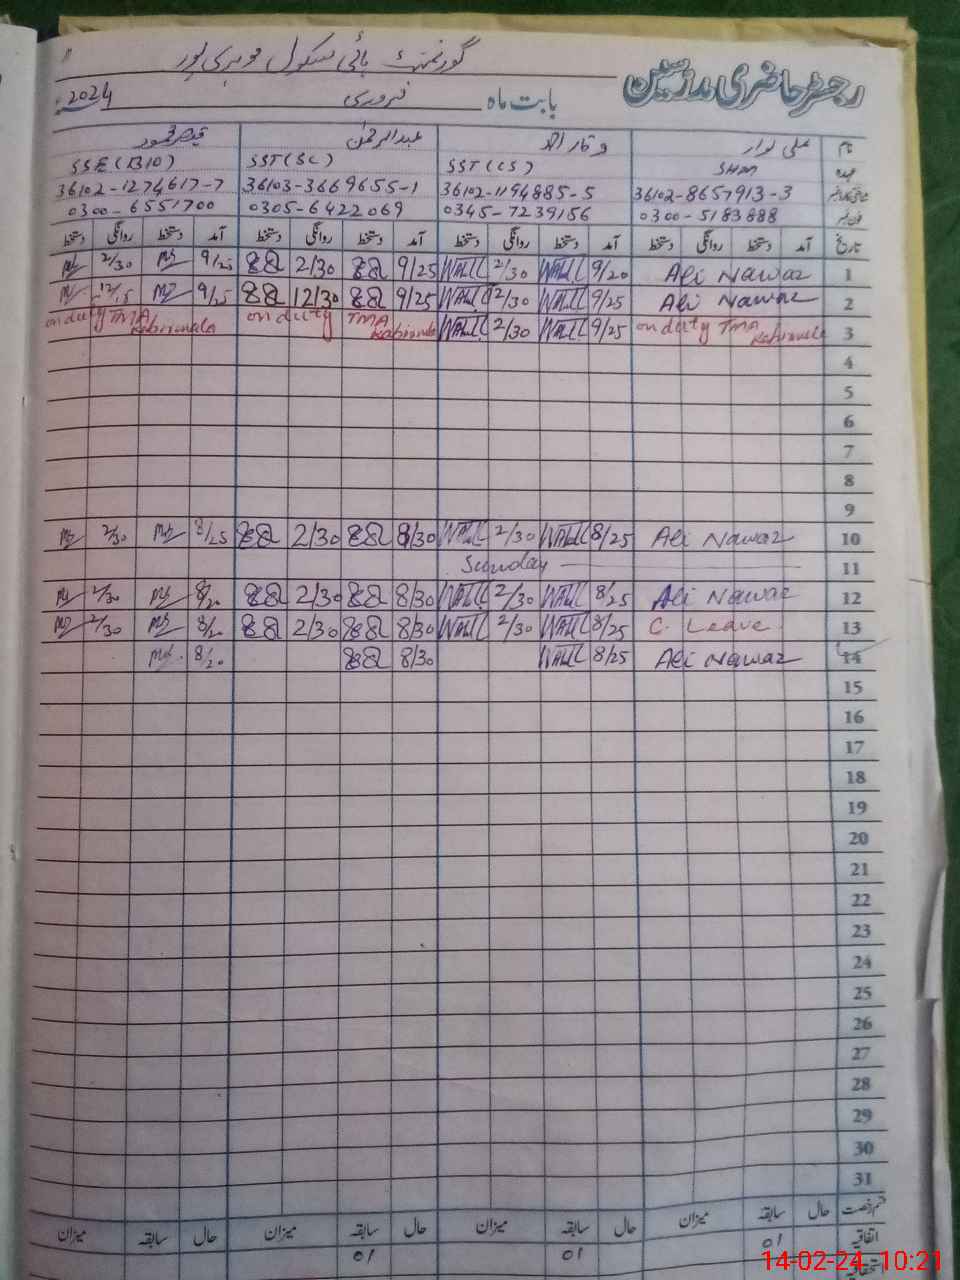 گورنمنٹ ہائی سکول
رجسٹر حاضری مدرسین
بابت ماہ فروری 2024
نام علی نواز وقار احمد عبدالرحمٰن قیصر محمود
عہدہ SHM SST (CS) SST (SC) SSE (BIO)
36102-8657913-3 36102-1194885-5 36103-3669655-1 36102-1274617-7
0300-5183888 0345-7239156 0305-6422069 0300-6551700
تاریخ آمد دستخط روانگی دستخط آمد دستخط روانگی دستخط آمد دستخط روانگی دستخط آمد دستخط روانگی دستخط
1 Ali Nawaz 9/20 2/30 9/25 2/30 9/25 2/30
2 Ali Nawaz 9/25 12/30 9/25 12/30 9/25 12/15
3 on duty TMA Kabirwala 9/25 2/30 on duty TMA Kabirwala on duty TMA Kabirwala
4
5
6
7
8
9
10 Ali Nawaz 8/25 2/30 8/30 2/30 8/25 2/30
11 Sunday
12 Ali Nawaz 8/25 2/30 8/30 2/30 8/20 2/30
13 C. Leave 8/25 2/30 8/30 2/30 8/20 2/30
14 Ali Nawaz 8/25 8/30 8/20
15
16
17
18
19
20
21
22
23
24
25
26
27
28
29
30
31
قسم رخصت حال سابقہ میزان حال سابقہ میزان حال سابقہ میزان حال سابقہ میزان
اتفاقیہ 01 01 01
14-02-24 10:21